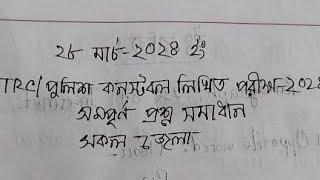 ২৮ মার্চ-২০২৪ ইং
TRC/পুলিশ কনস্টবল লিখিত পরীক্ষা-২০২৪
সম্পূর্ণ প্রশ্ন সমাধান
সকল জেলা